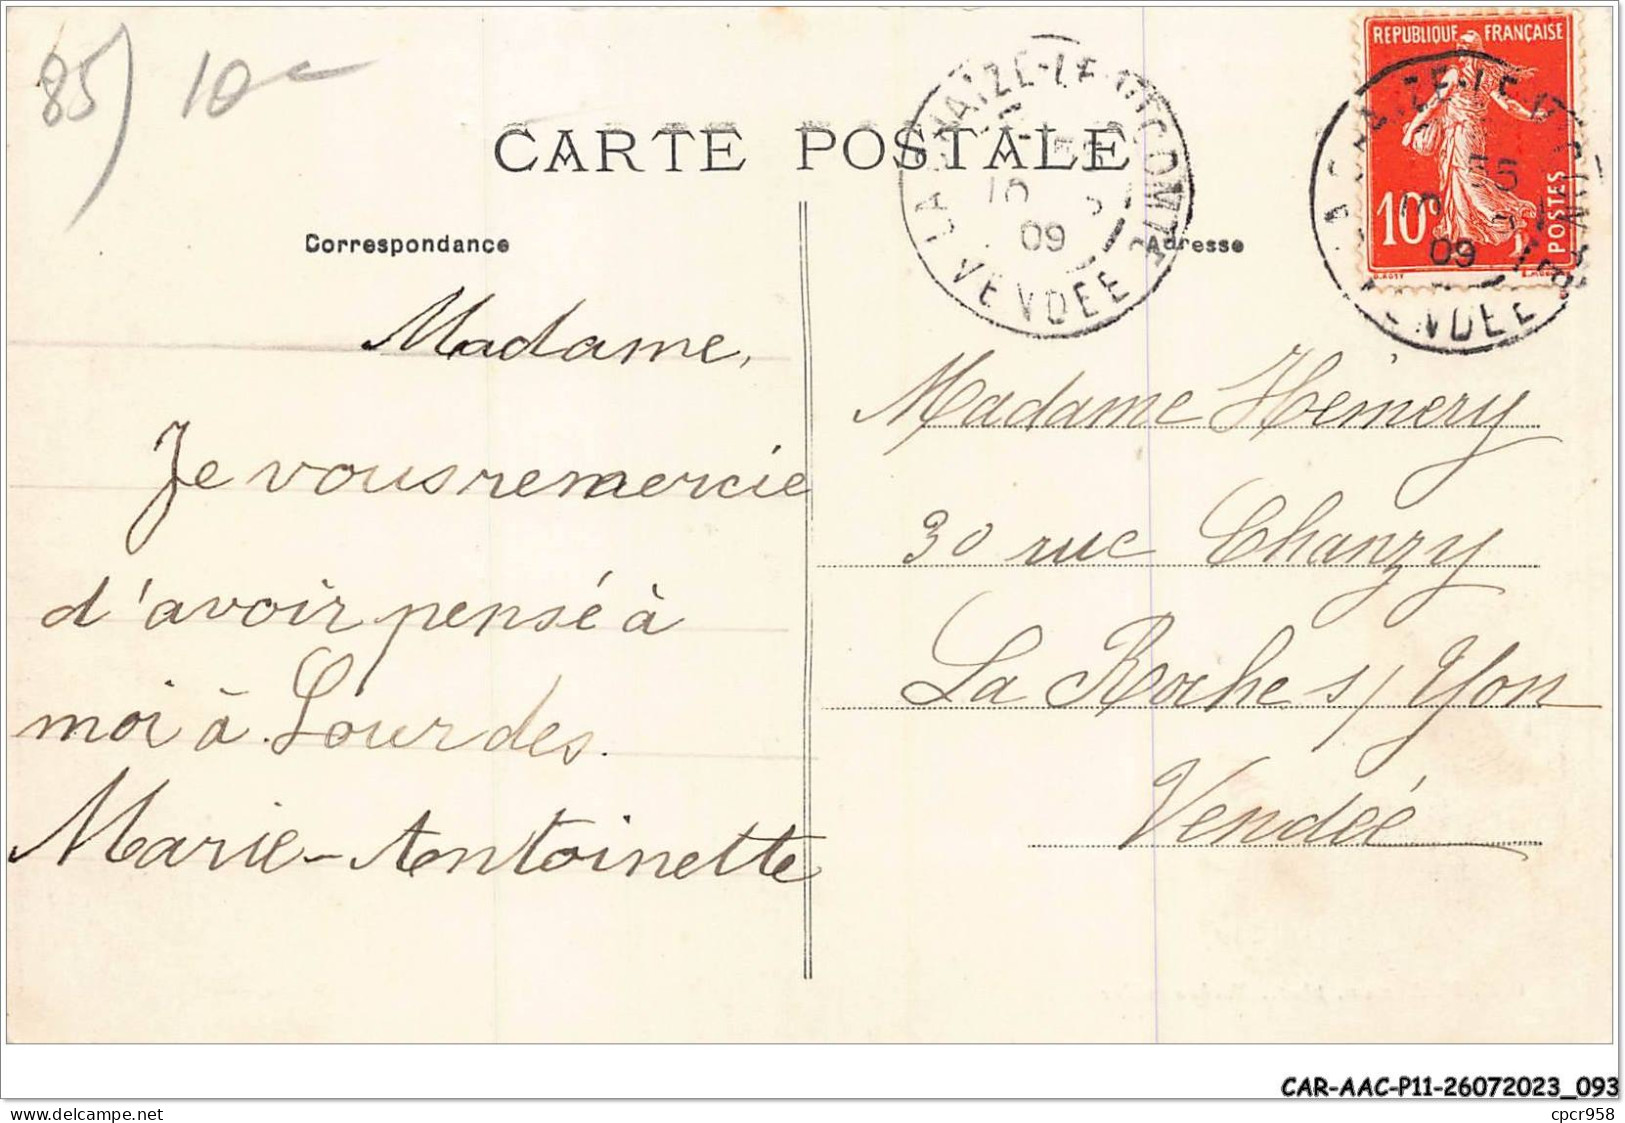 85) 10c
REPUBLIQUE FRANÇAISE
10c
POSTES
CARTE POSTALE
LA CHAIZE-LE-VICOMTE
10
09
VENDEE
09
VENDEE
Correspondance
Adresse
Madame,
Je vous remercie
d'avoir pensé à
moi à Lourdes.
Marie-Antoinette
Madame Hémery
30 rue Chanzy
La Roche s/ Yon
Vendée
CAR-AAC-P11-26072023_093
www.delcampe.net
cpcr958